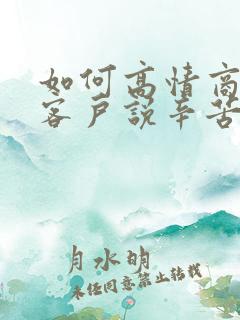 如何高情商
客户说辛苦
月水明
未经同意禁止转载